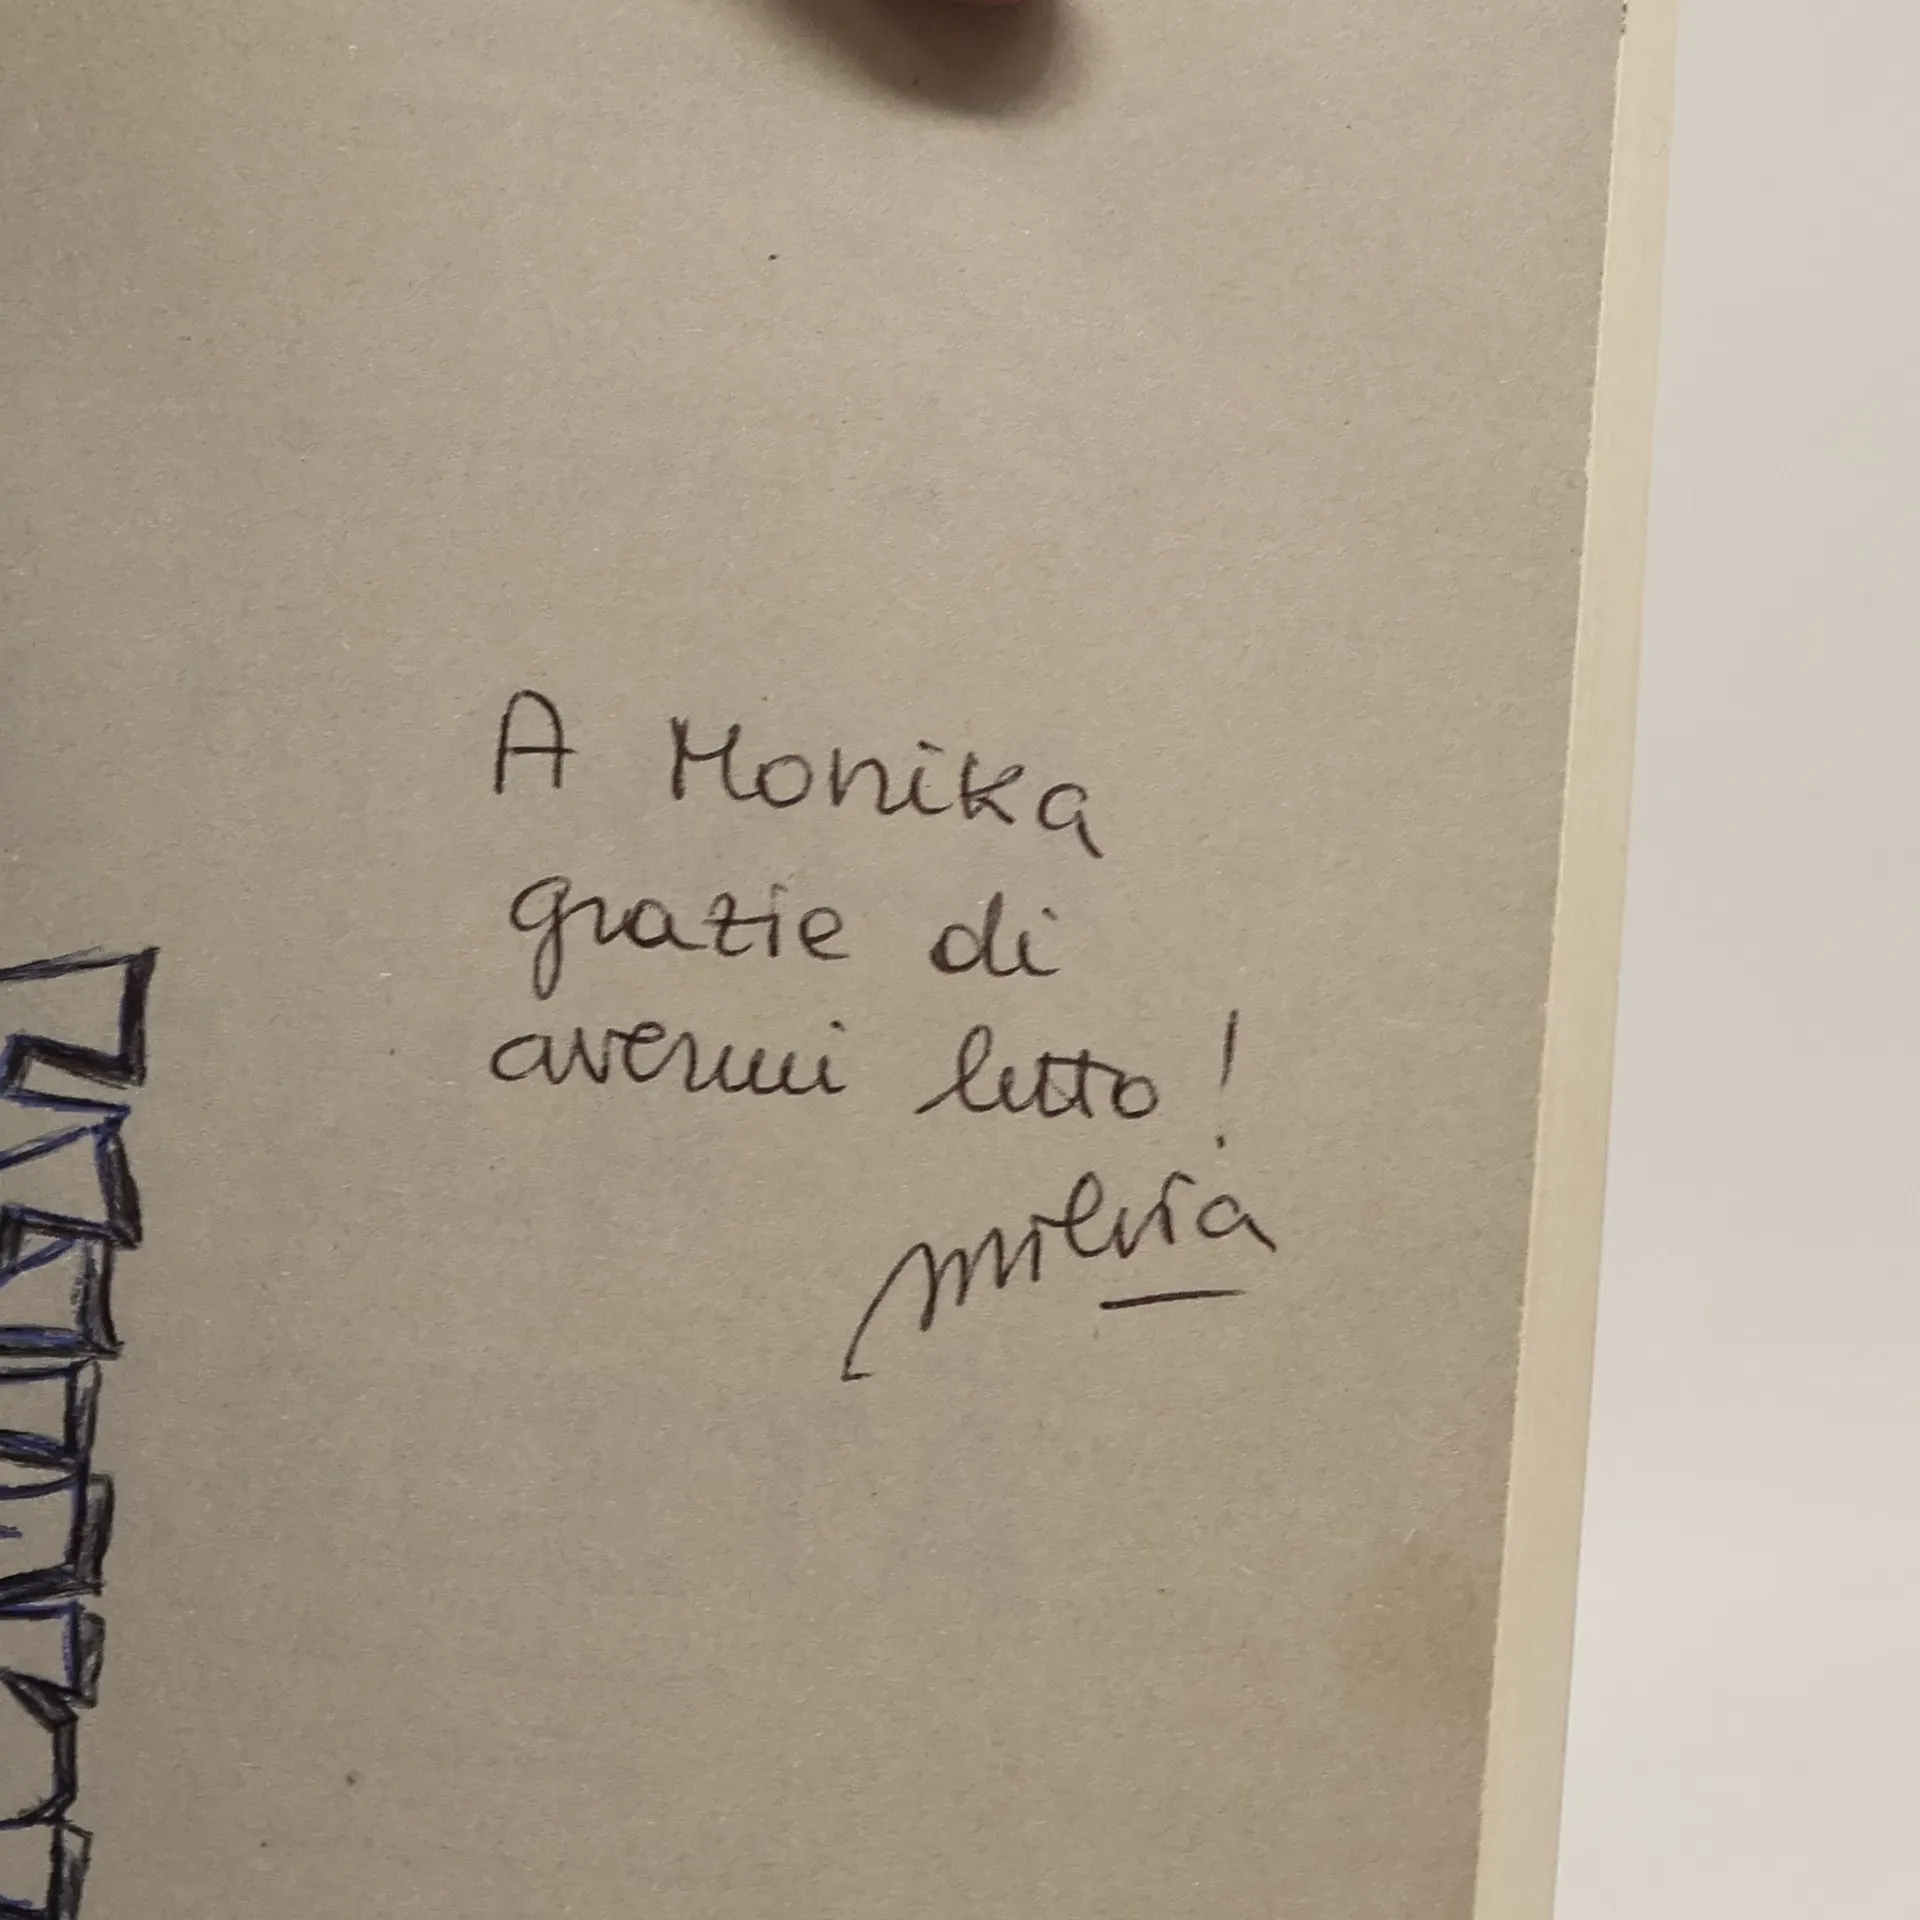 A Monika
grazie di
avermi letto!
Milvia